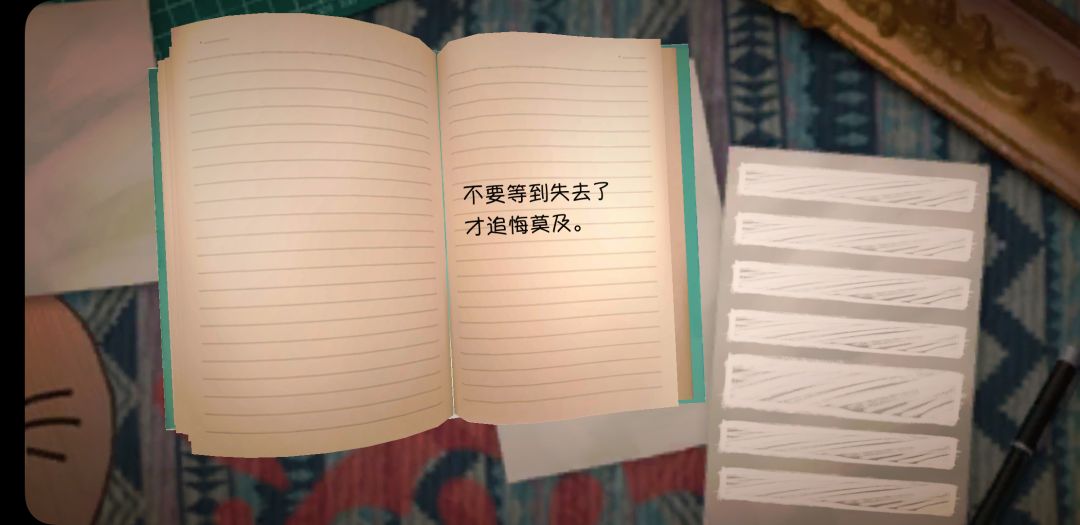 不要等到失去了
才追悔莫及。